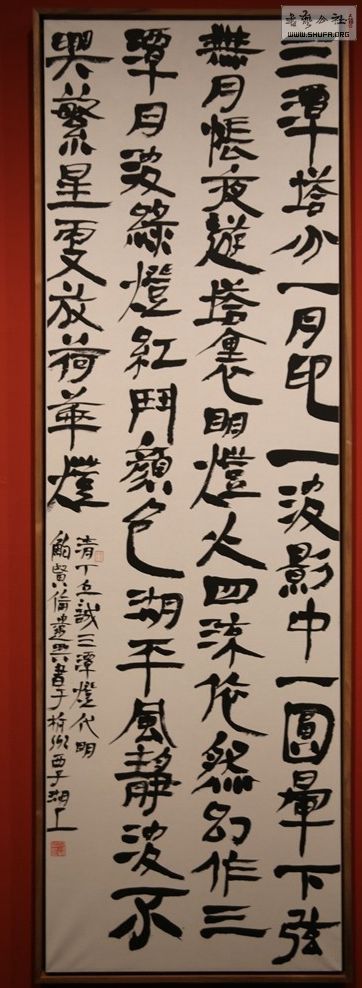 三潭塔分一月印一波影中一圓暈下弦
無月悵夜遊塔裏明燈火四流依然幻作三
潭月波綠燈紅鬥顏色湖平風靜波不
興繁星更放荷華燈
清丁立誠三潭燈代明
鮑賢倫遣興書于杭州西子湖上
書藝公社
WWW.SHUFA.ORG